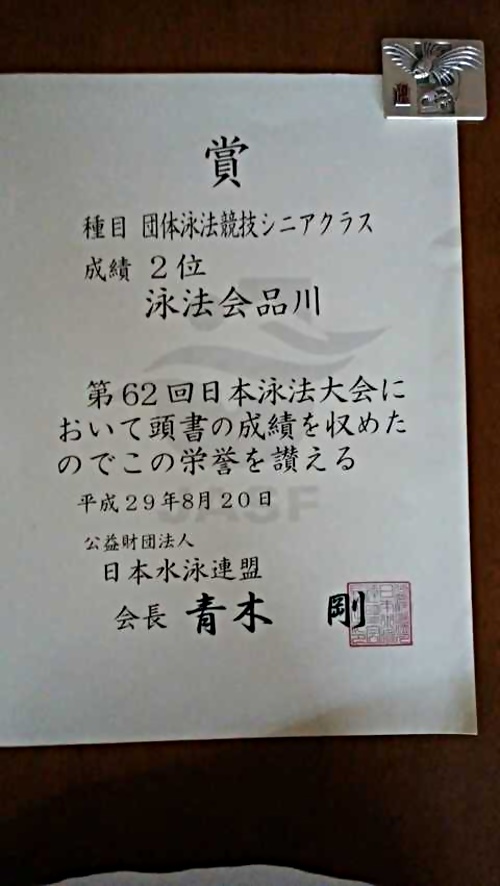 賞
種目 団体泳法競技シニアクラス
成績 2位
泳法会品川
第62回日本泳法大会に
おいて頭書の成績を収めた
のでこの栄誉を讃える
平成29年8月20日
JASF
公益財団法人
日本水泳連盟
会長 青木 剛